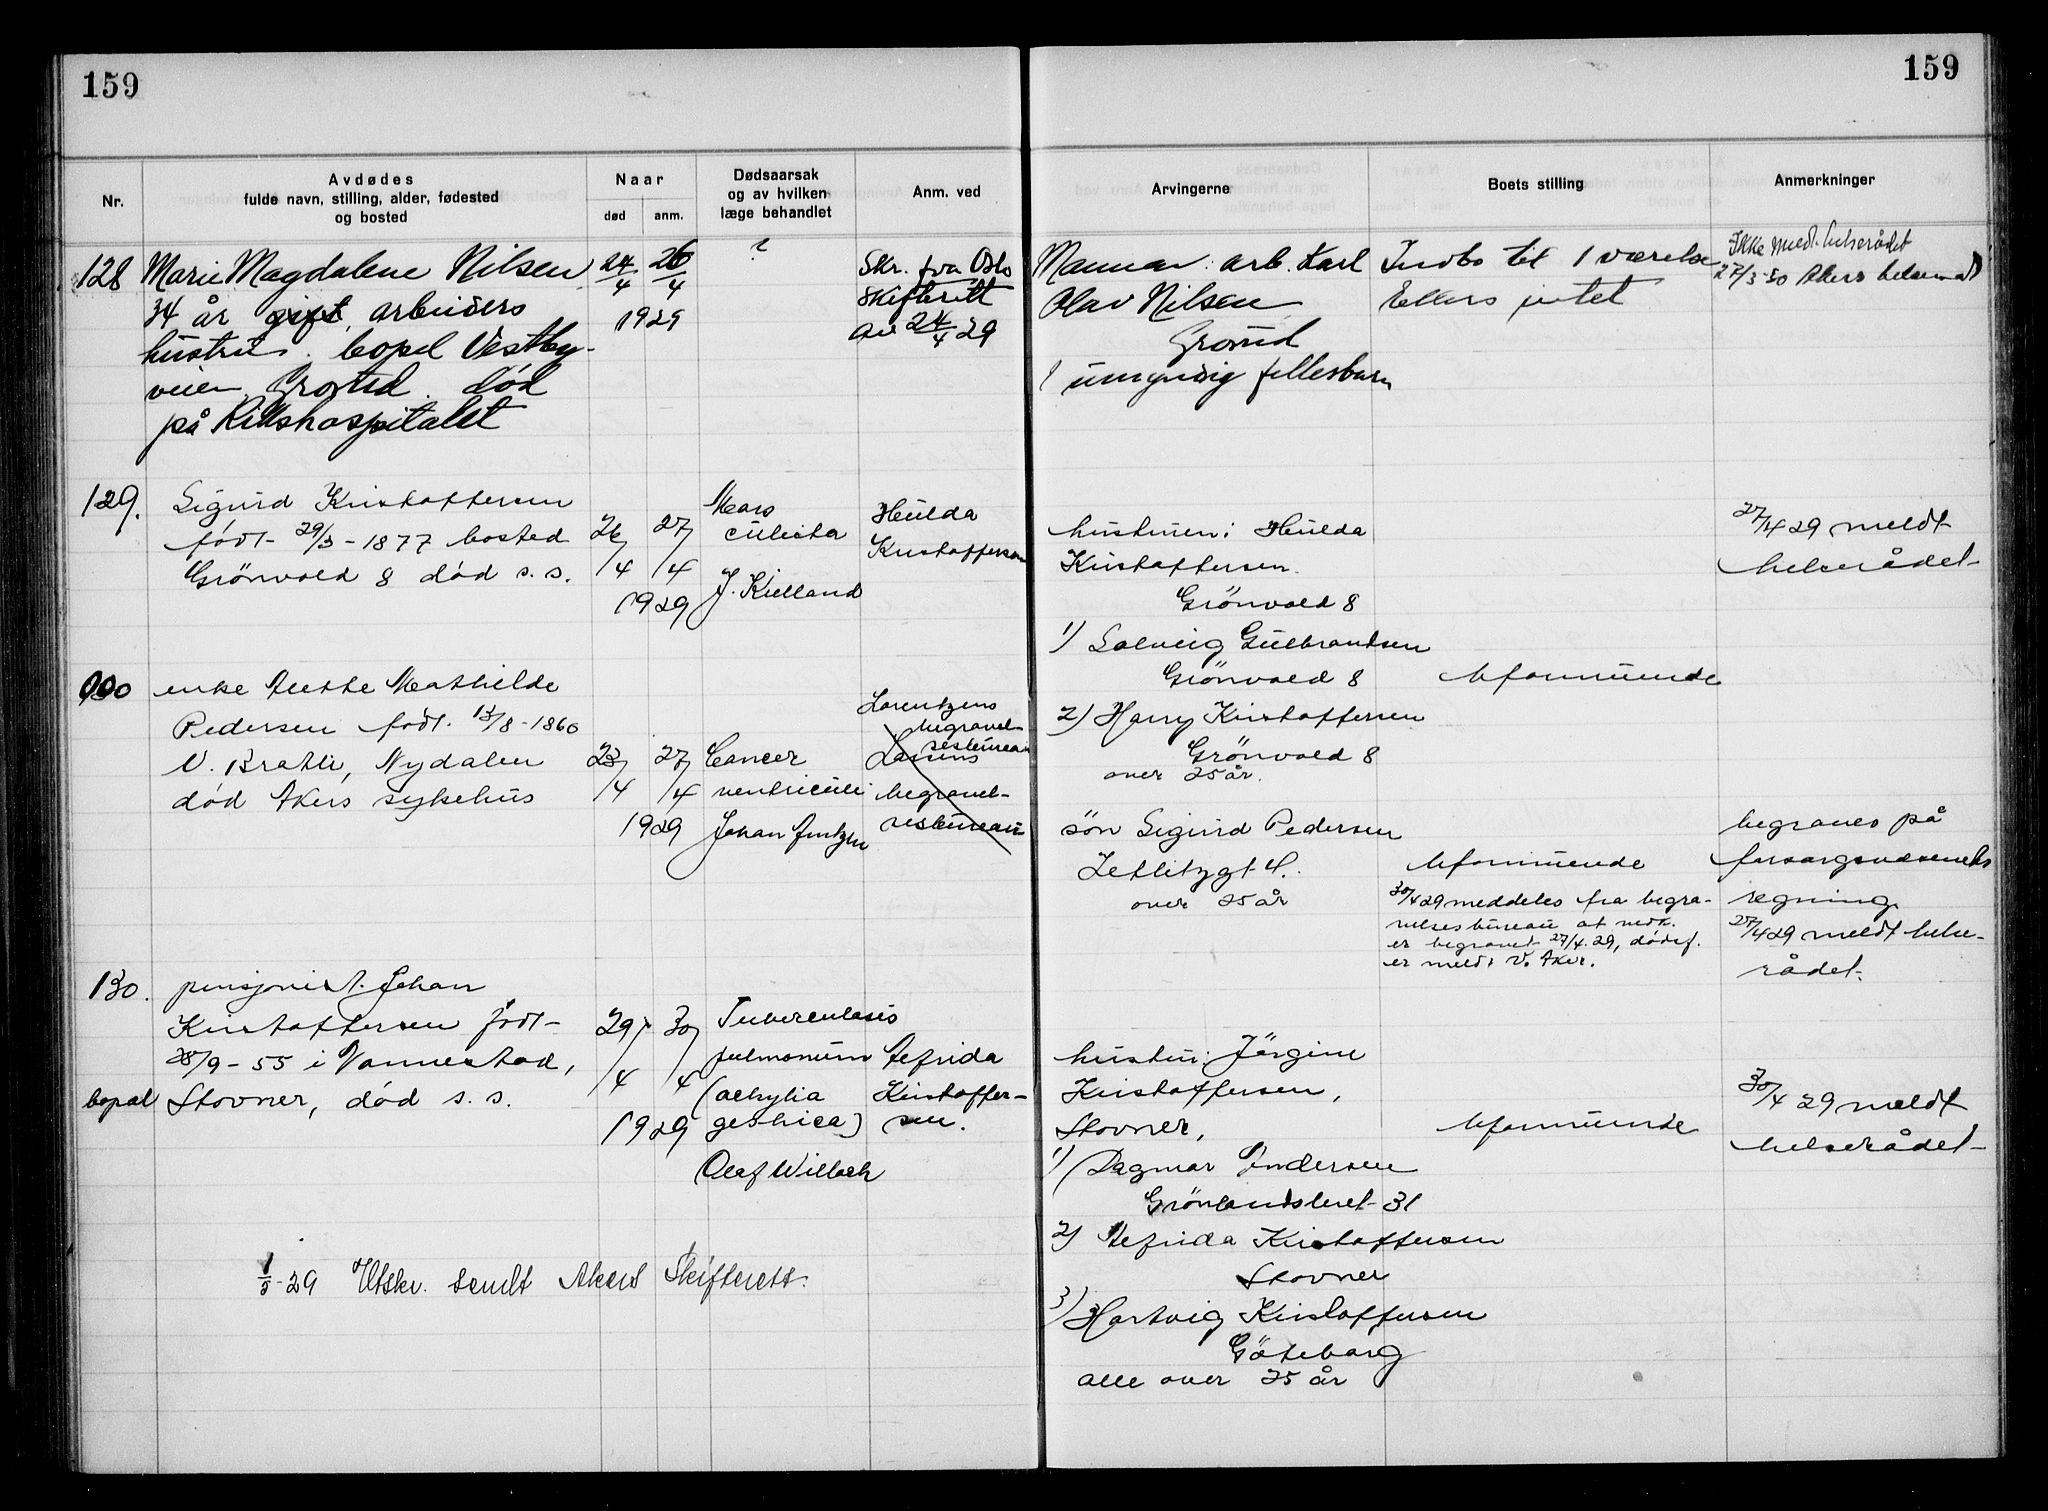 159
159
Nr.
Avdødes
fulde navn, stilling, alder, fødested
og bosted
Naar
død
anm.
Dødsaarsak
og av hvilken
læge behandlet
Anm. ved
Arvingerne
Boets stilling
Anmerkninger
128
Marie Magdalene Nilsen
34 år gift, arbeiders
hustru. bopel Vestby-
veien Grorud. død
på Rikshospitalet
24/4
26/4
1929
?
Skr. fra Oslo
skifterett
av 24/4 29
Mannen: arb. Karl
Olav Nilsen
Grorud
1 umyndig fellesbarn
Indbo til 1 værelse
Ellers intet
Ikke meldt helserådet
27/3-30 Akers helseråd
129.
Sigurd Kristoffersen
født 29/3-1877 bosted
Grönvold 8 död s. s.
26/4
27/4
1929
Mors
subita
J. Kielland
Hulda
Kristoffersen
hustruen: Hulda
Kristoffersen.
Grönvold 8
1) Solveig Gulbrandsen
Grönvold 8
2) Harry Kristoffersen
Grönvold 8
over 25 år.
Uformuende
27/4 29 meldt
helserådet
000
enke Mathilde
Pedersen født 13/8-1860
V. Bratli, Nydalen
död Akers sykehus
23/4
27/4
1929
Cancer
ventriculi
Johan
Lorentzens
begravel-
sesbureau
Lassens
begravel-
sesbureau
sön Sigurd Pedersen
Zetlitzgt 4.
over 25 år
Uformuende
30/4 29 meddeles fra begra-
velsesbureau at vedk.
er begravet 27/4.29, dödsf.
er meldt V. Aker.
begraves på
forsorgsvæsenets
regning.
27/4 29 meldt helse-
rådet.
130.
pensjonist Johan
Kristoffersen födt
28/9-55 i Vannestad,
bopæl Stovner, död s. s.
29/4
30/4
1929
Tuberculosis
pulmonum
(achylia
gastrica)
Olaf Willoch
Alfrida
Kristoffer-
sen.
hustru: Jörgine
Kristoffersen,
Stovner,
1) Dagmar Andersen
Grönlandsleret 31
2) Alfrida Kristoffersen
Stovner
3) Hartvig Kristoffersen
Göteborg
alle over 25 år
Uformuende
30/4 29 meldt
helserådet
1/5-29 Utskr. sendt Akers Skifterett.